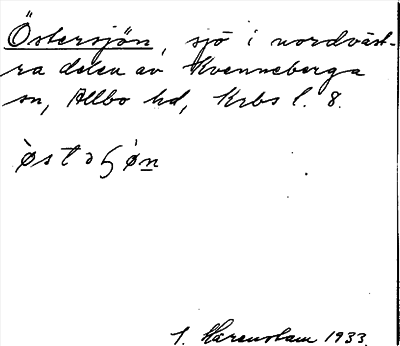 Östersjön, sjö i nordväst-
ra delen av Kvenneberga
sn, Allbo hd, Krbs l. 8.
òstaʃøn
1933.